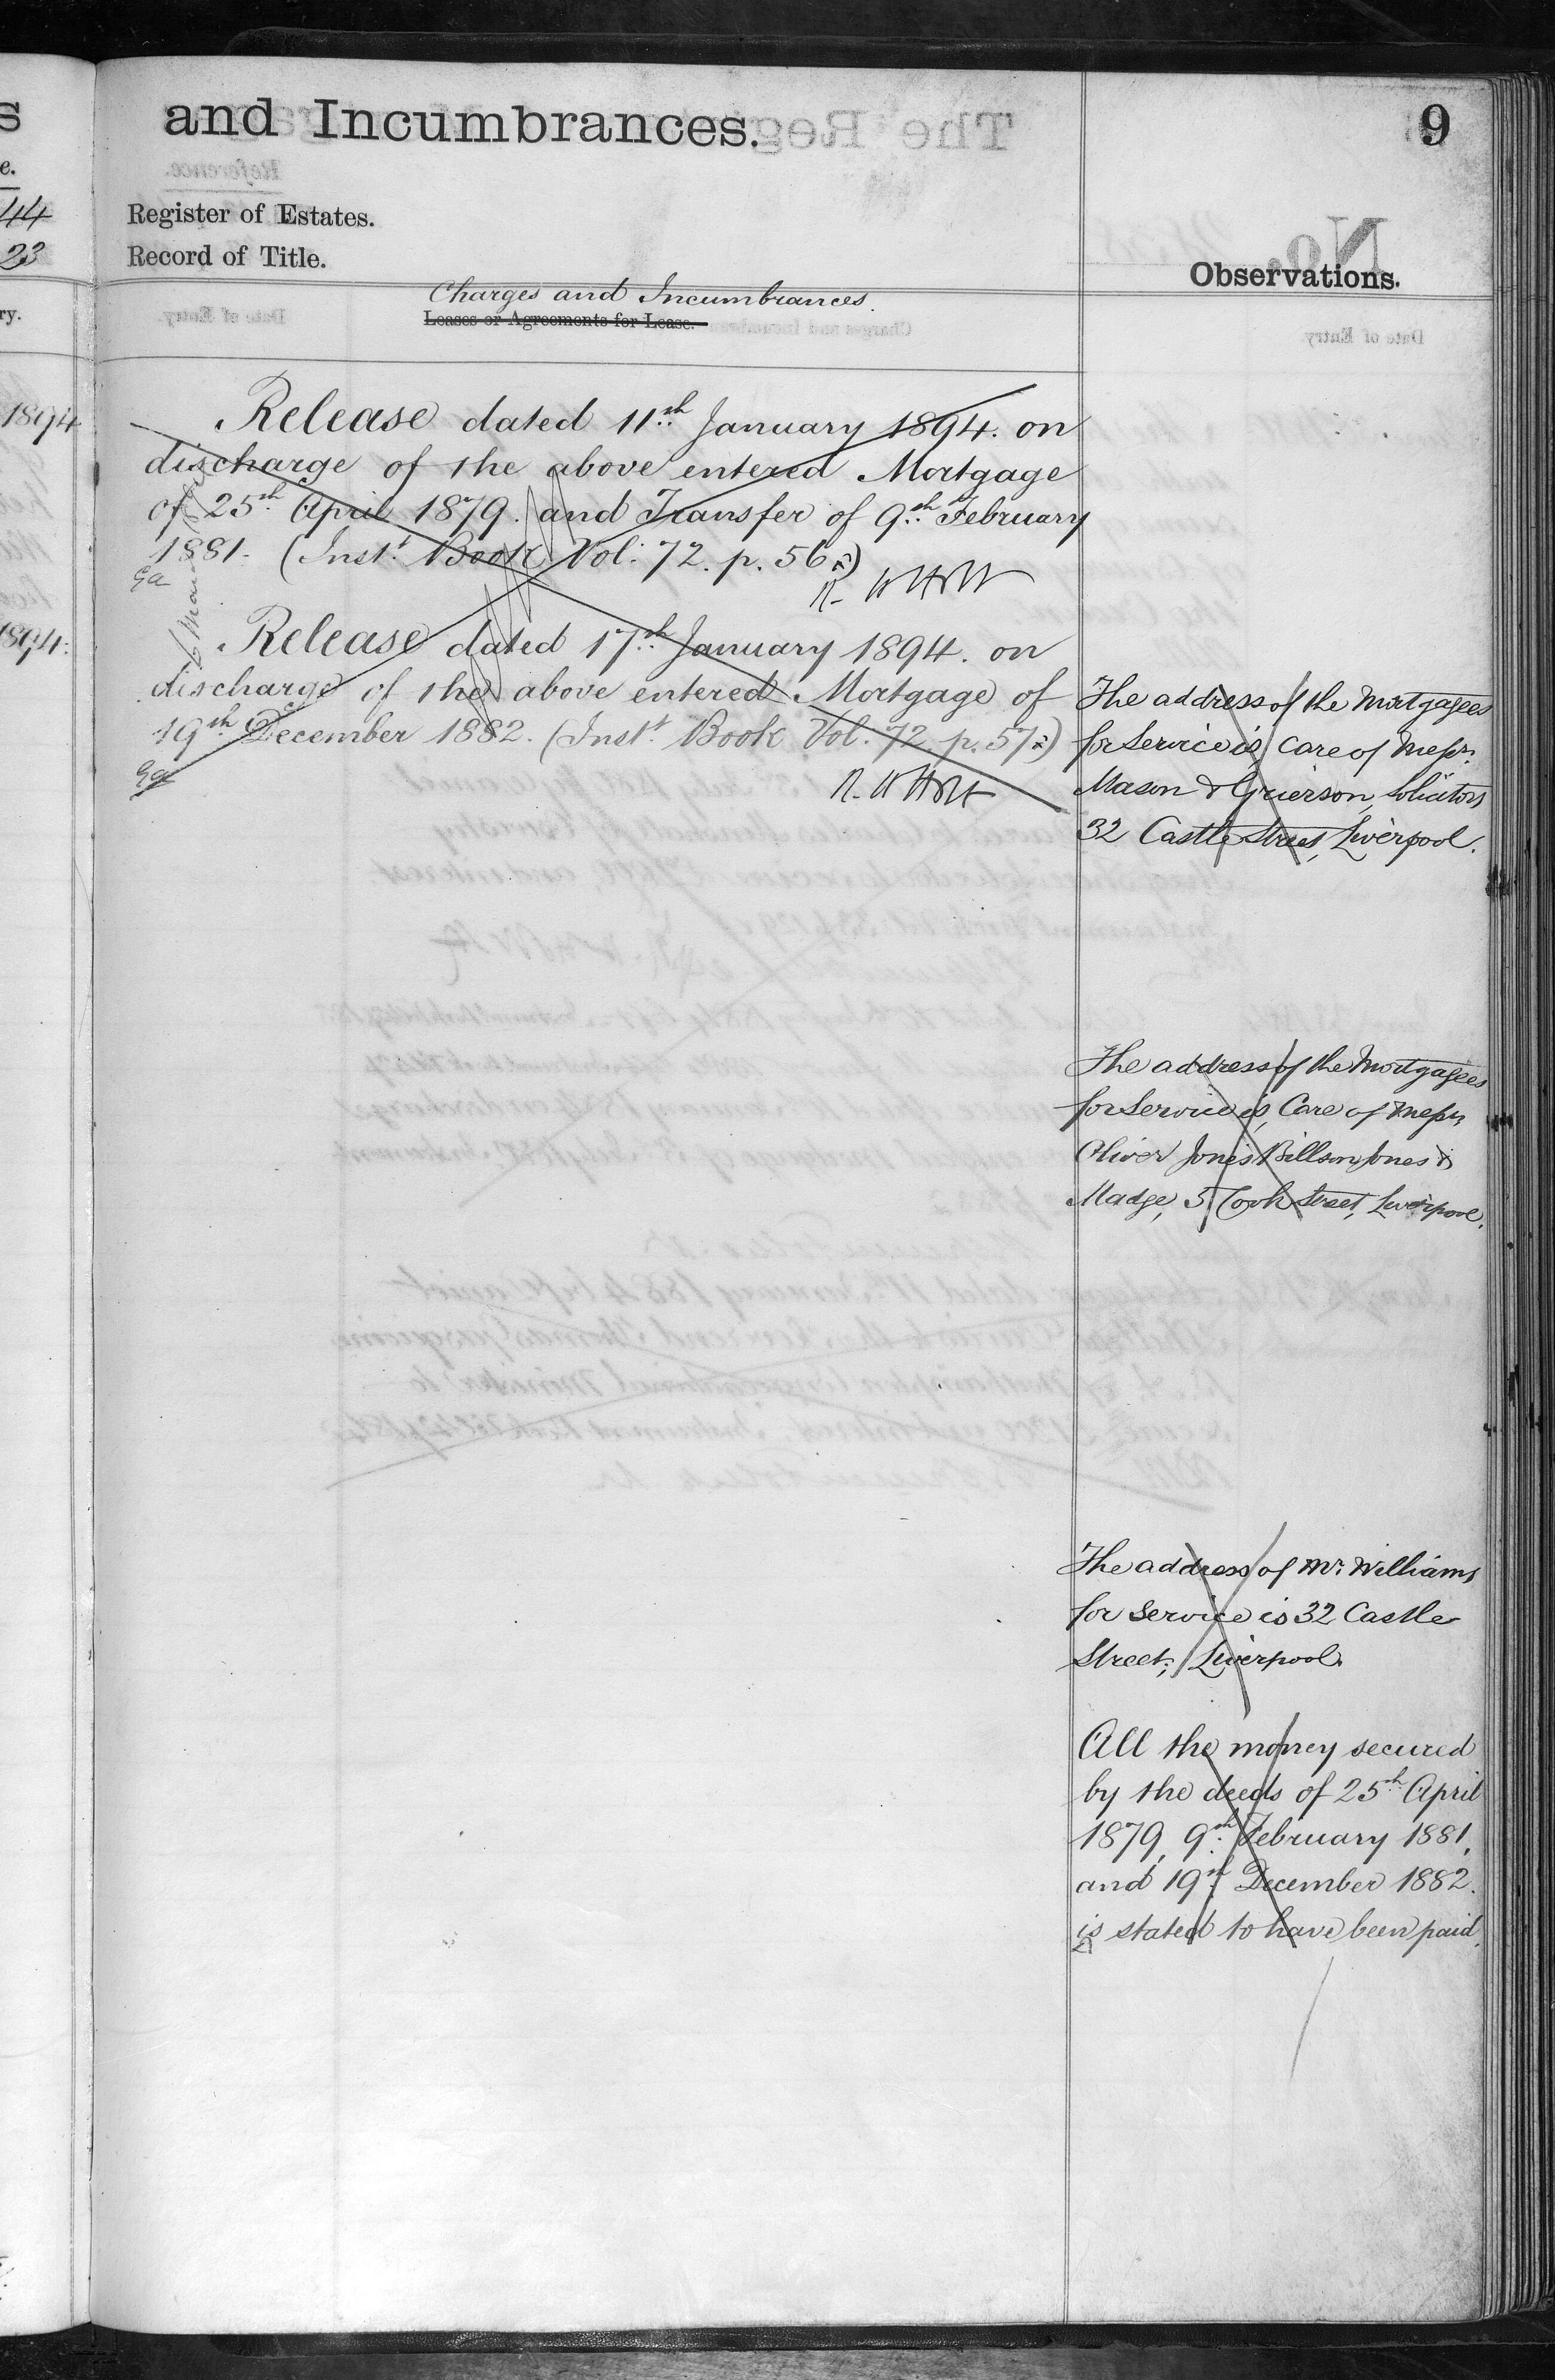 and Incumbrances.
9
Register of Estates.
Record of Title.
Observations.
Charges and Incumbrances.
Leases or Agreements for Lease.
Release dated 11th January 1894. on
discharge of the above entered Mortgage
of 25th April 1879. and Transfer of 9th February
1881. (Inst. Book Vol. 72. p. 56
Release dated 17th January 1894. on
discharge of the above entered Mortgage of
19th December 1882. (Inst. Book Vol. 72. p. 57
The address of the Mortgagees
for Service is, Care of Messrs.
Mason & Grierson, Solicitors
32 Castle Street, Liverpool.
The address of the Mortgagees
for Service is, Care of Messrs
Oliver Jones Billson Jones &
Madge, 5 Cook Street, Liverpool.
The address of Mr. Williams
for Service is 32 Castle
Street, Liverpool.
All the money secured
by the deeds of 25th April
1879, 9th February 1881,
and 19th December 1882.
is stated to have been paid.
s
e.
44
23
ry.
1894
1894.